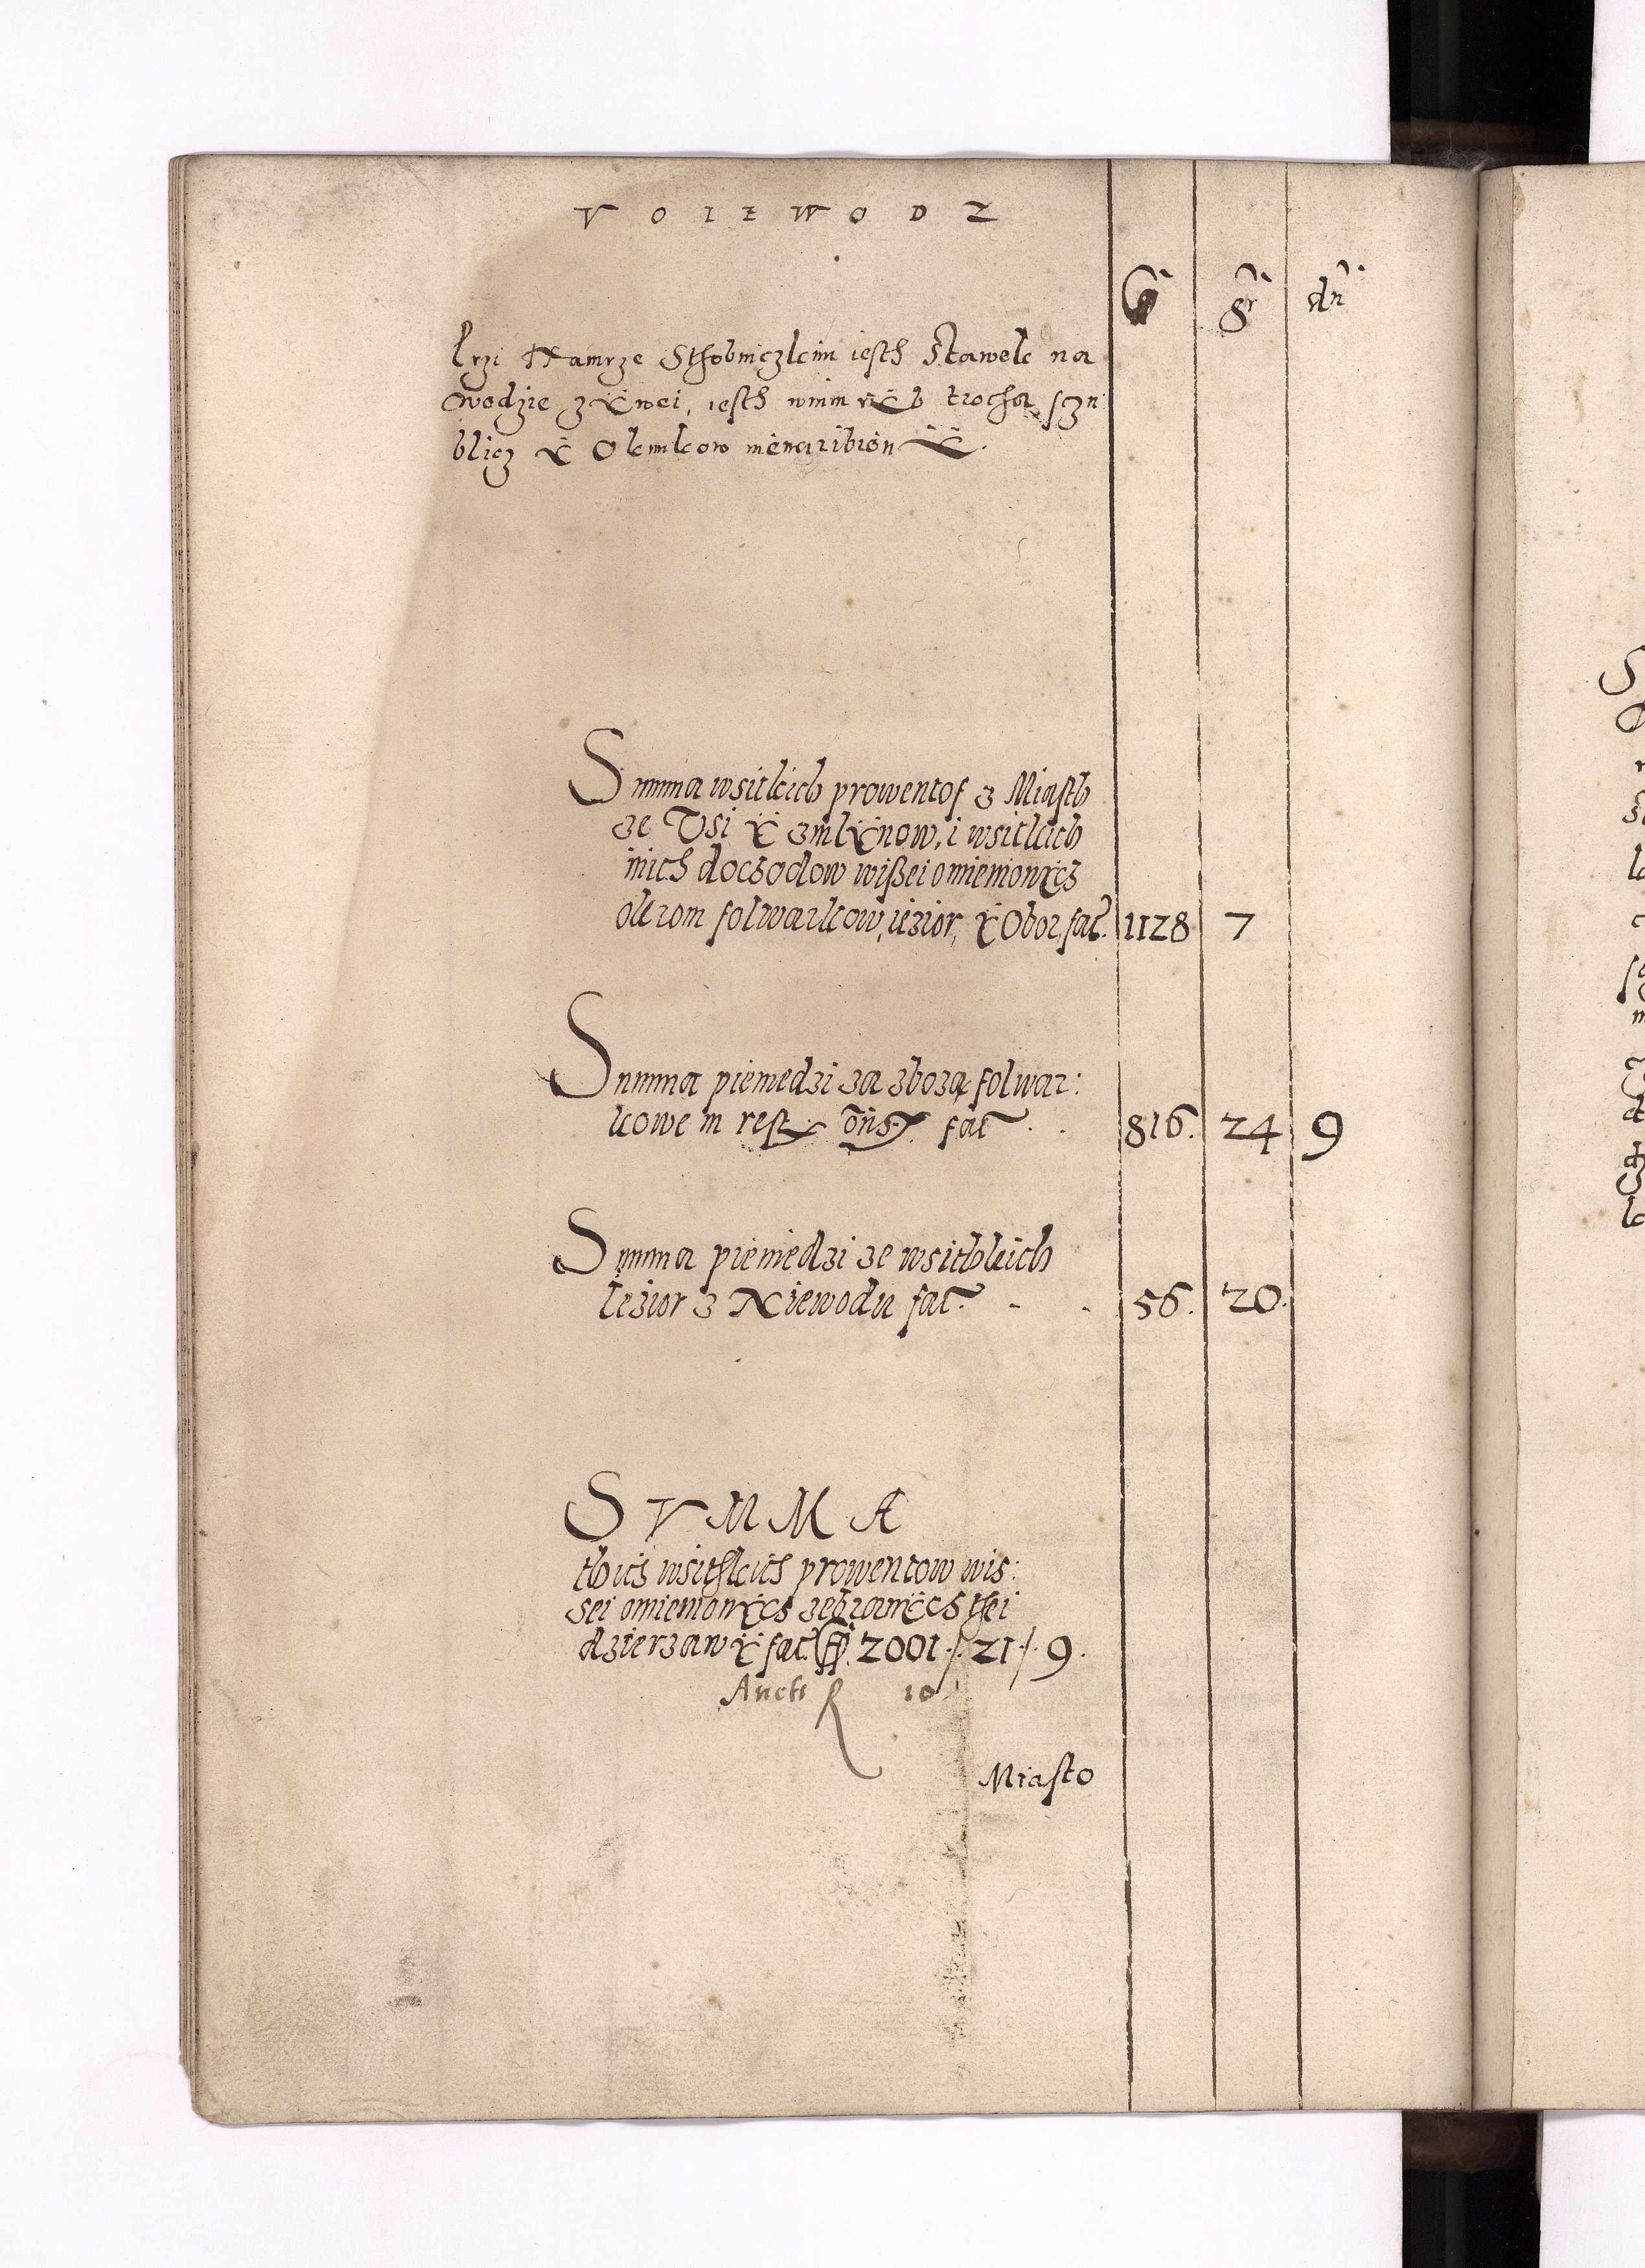 VOIEWODZ
fl gr dn
Przi Hamrze Sthobniczkim iesth Stawek na
wodzie zÿwei, iesth wnim rÿb trocha sczu
blicz ÿ Okunkow nienaribionÿ.
Summa wsitkich prowentof z Miasth
ze Vsi ÿ zmlÿnow, i wsitkich
inich doczodow wißei omienionÿch
okrom folwarkow, iezior, ÿ Obor fac. 1128 7
Summa pieniedzi za zboza folwar:
kowe in fac 816. 24 9
Summa pieniedzi ze wsithkich
Iezior z Niewodu fac. 56. 20.
SVMMA
thich wsithkich prowentow wis:
sei omienionÿch zebranÿch thei
dzierzawÿ fac. fl. 2001 /. 21 /. 9.
Miasto